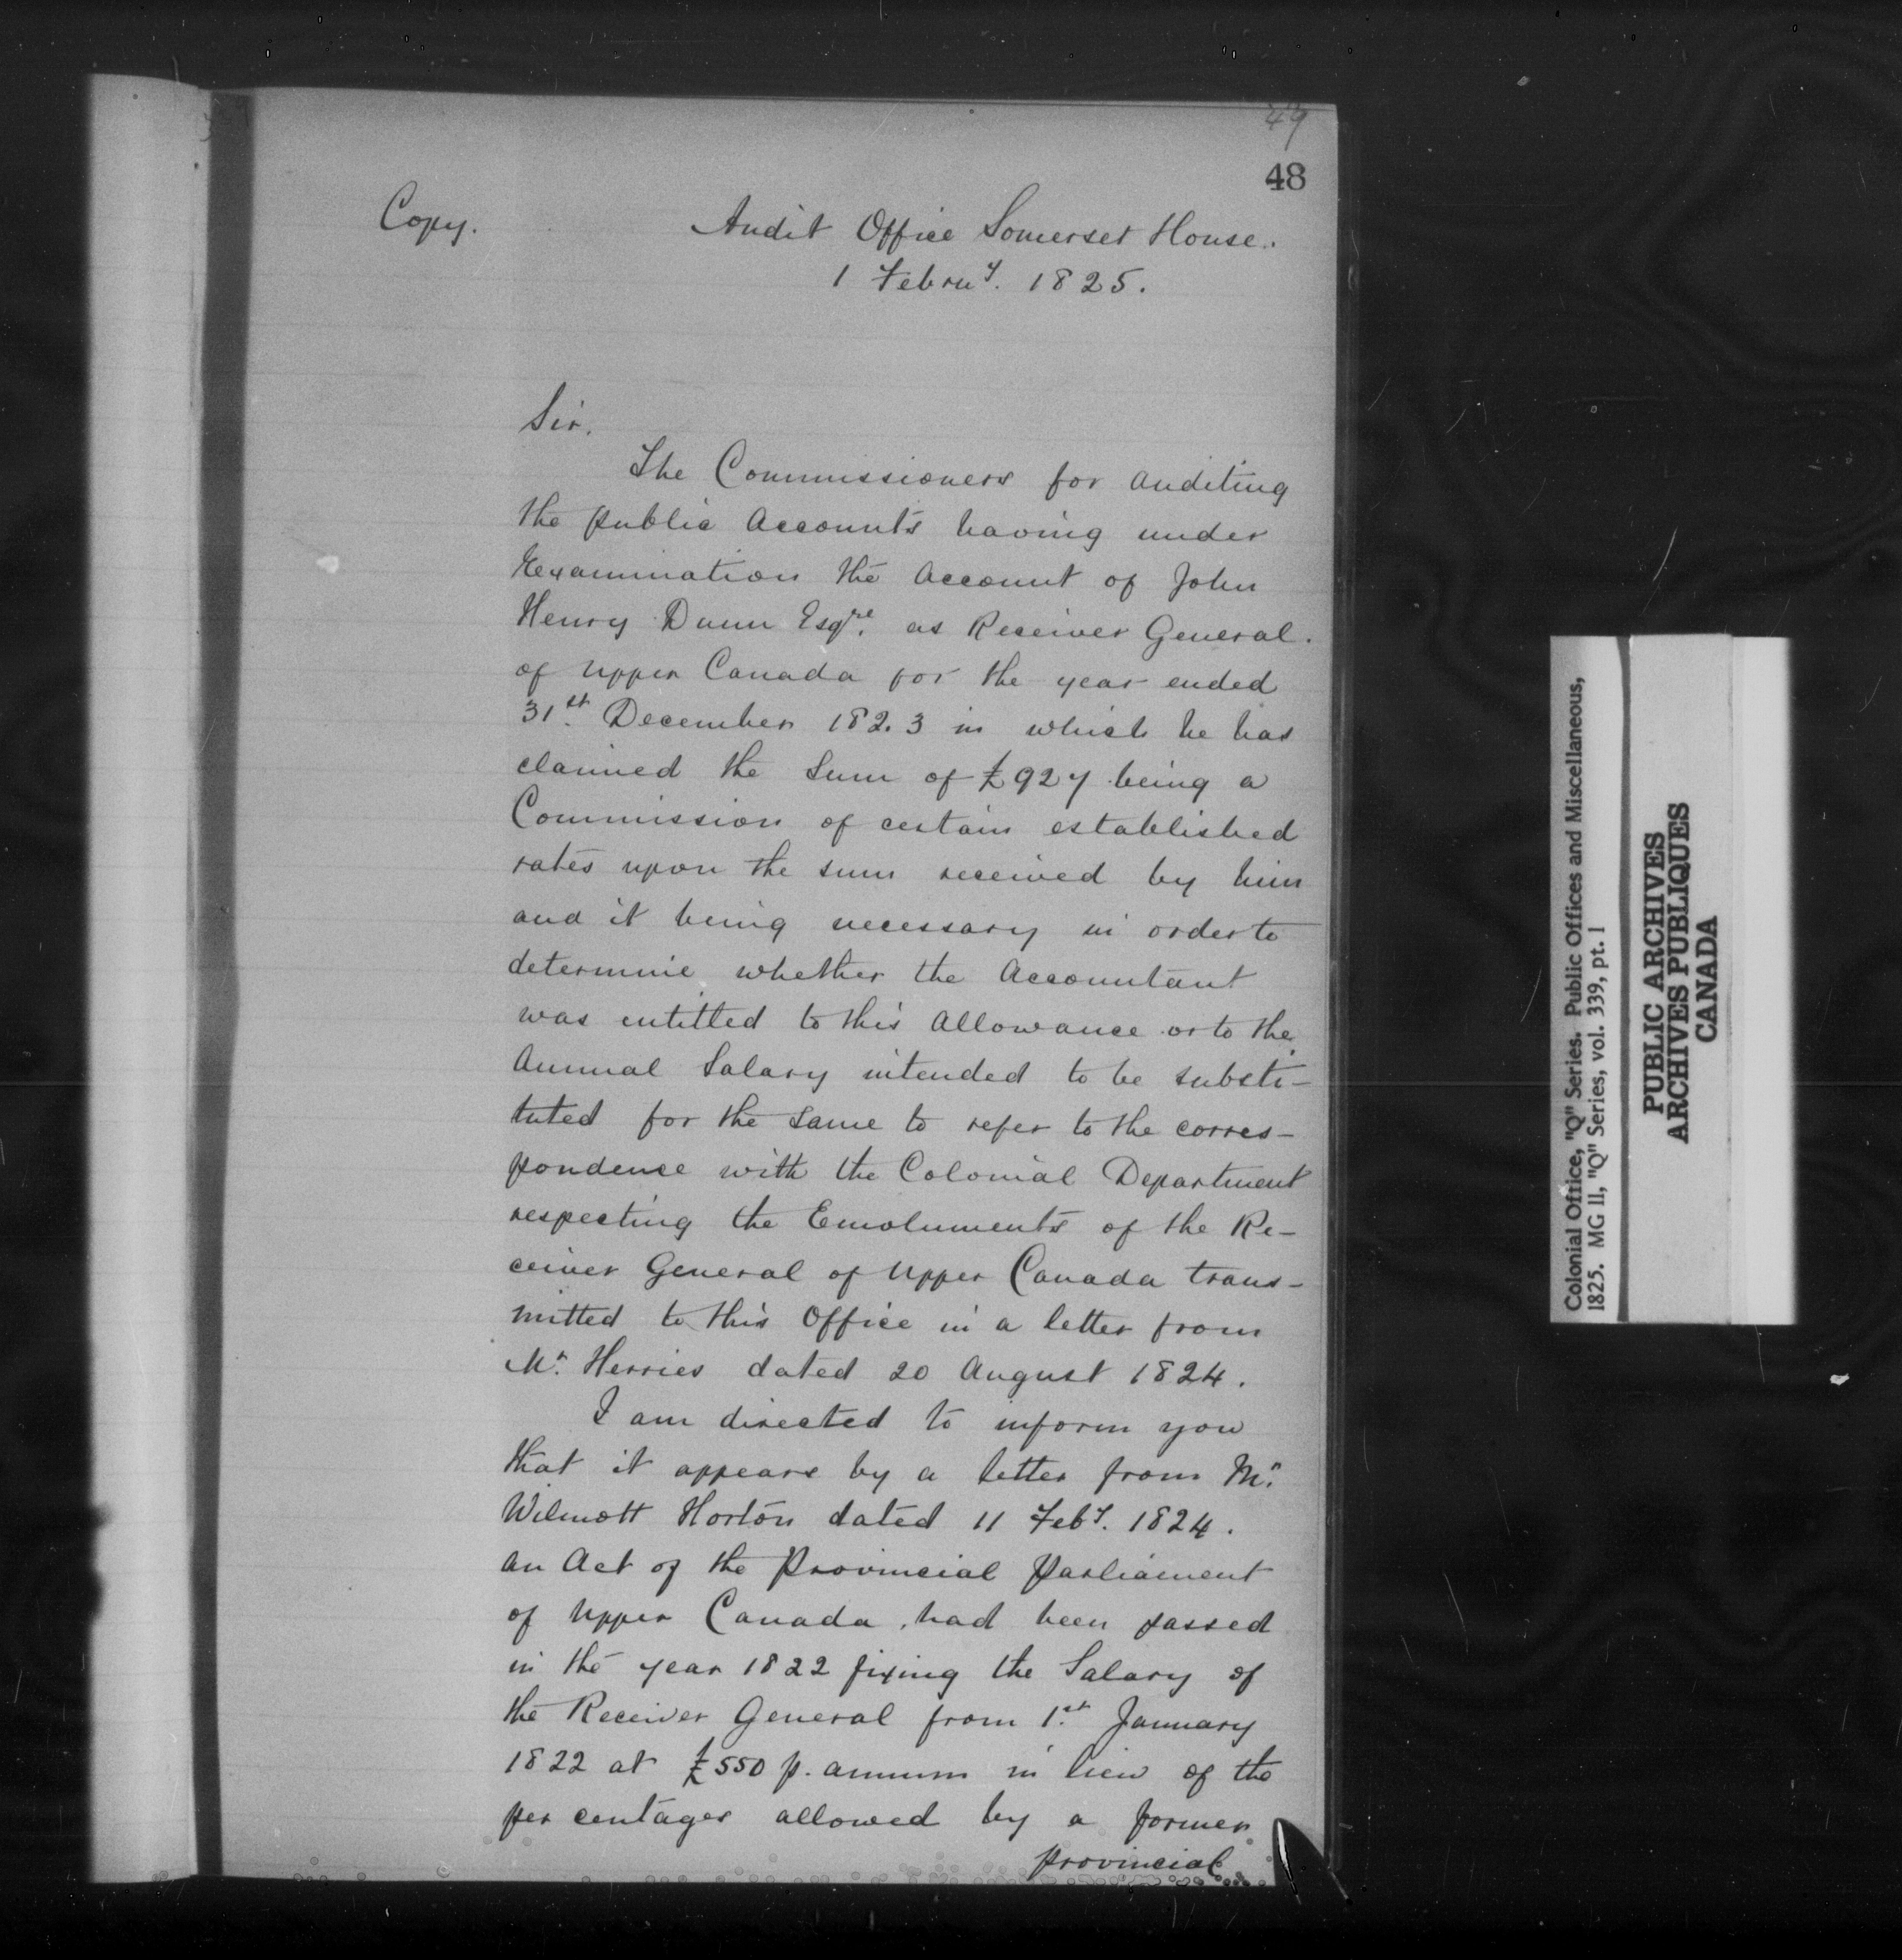 49
48
Copy.
Audit Office Somerset House.
1 Febru^y. 1825.
Sir.
The Commissioners for Auditing
the public Accounts having under
Examination the Account of John
Henry Dunn Esq^re. as Receiver General.
of Upper Canada for the year ended
31^st. December 1823 in which he has
claimed the Sum of £927 being a
Commission of certain established
rates upon the sum received by him
and it being necessary in order to
determine whether the Accountant
was entitled to this Allowance or to the
Annual Salary intended to be substi-
tuted for the same to refer to the corres-
pondence with the Colonial Department
respecting the Emoluments of the Re-
ceiver General of Upper Canada trans-
mitted to this Office in a letter from
M^r. Herries dated 20 August 1824.
I am directed to inform you
that it appears by a letter from M^r.
Wilmott Horton dated 11 Feb^y. 1824.
an Act of the Provincial Parliament
of Upper Canada, had been passed
in the year 1822 fixing the Salary of
the Receiver General from 1^st. January
1822 at £550 p. annum in lieu of the
per centages allowed by a former
provincial
Colonial Office, "Q" Series. Public Offices and Miscellaneous,
1825. MG 11, "Q" Series, vol. 339, pt. 1
PUBLIC ARCHIVES
ARCHIVES PUBLIQUES
CANADA